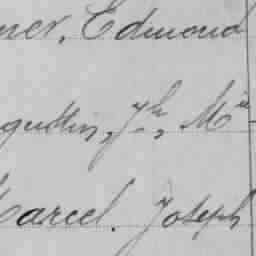 ner, Edmond
gustin, Jh, Mie
Marcel. Joseph